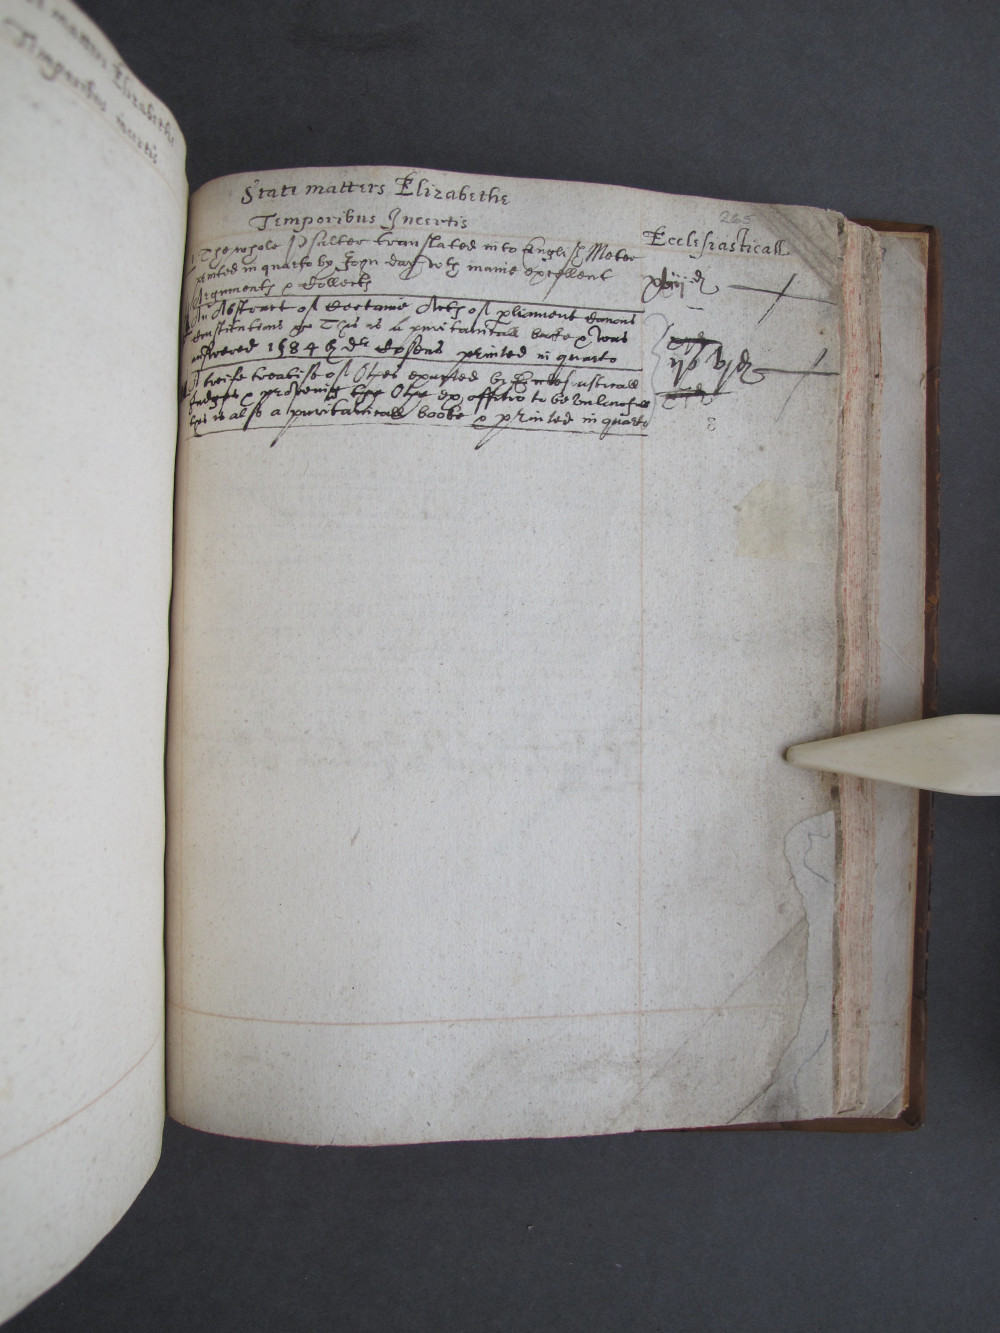 State matters Elizabethe
Temporibus Incertis
265
State matters Elizabethe
Temporibus Incertis
Ecclesiasticall
The whole Psalter translated into English Meter
printed in quarto by John Day wth manie excellent
Arguments & Collects
An Abstract of Certaine Acts of pliament Canons
Constitutions &c This is a puritanicall booke & was
answered 1584 by Dr Cosens printed in quarto
A breife treatise of Othes exacted by Ecclesiasticall
Judges & proveing the Othe ex officio to be unlawfull
this is also a puritanicall booke & printed in quarto
8